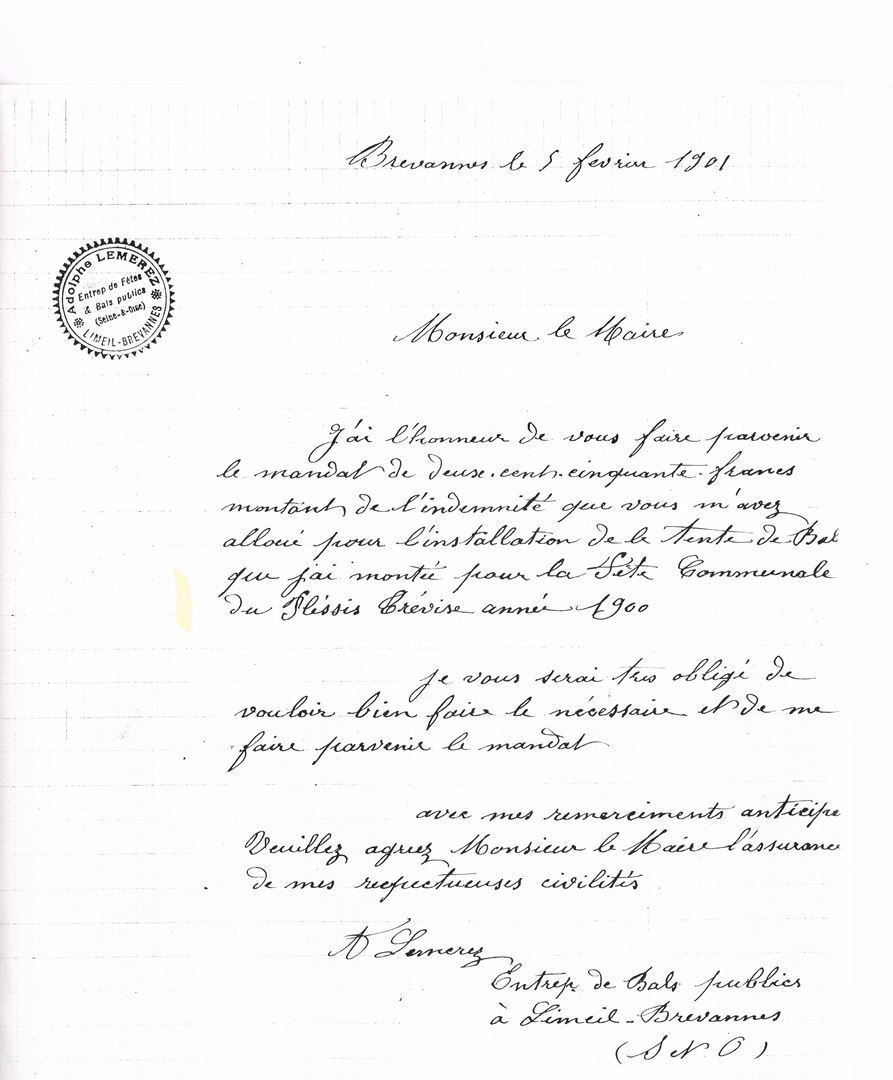 Brevannes le 5 fevrier 1901
Adolphe LEMEREZ
Entrep de Fêtes
& Bals publics
(Seine-&-Oise)
LIMEIL-BREVANNES
Monsieur le Maire
J'ai l'honneur de vous faire parvenir
le mandat de deux.cent.cinquante francs
montant de l'indemnité que vous m'avez
alloué pour l'installation de le tente de Bal
que j'ai montée pour la Fête Communale
du Pléssis Trévise année 1900
je vous serai tres obligé de
vouloir bien faire le nécessaire et de me
faire parvenir le mandat
avec mes remerciments anticipe
Veuillez agreez Monsieur le Maire l'assurance
de mes respectueuses civilités
A Lemerez
Entrep de Bals publics
à Limeil-Brevannes
(S et O)